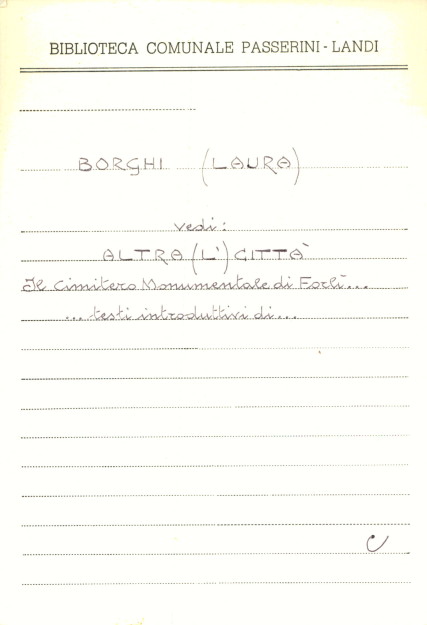 BIBLIOTECA COMUNALE PASSERINI-LANDI
BORGHI (LAURA)
vedi:
ALTRA (L') CITTÀ
Il Cimitero Monumentale di Forlì...
...testi introduttivi di...
C